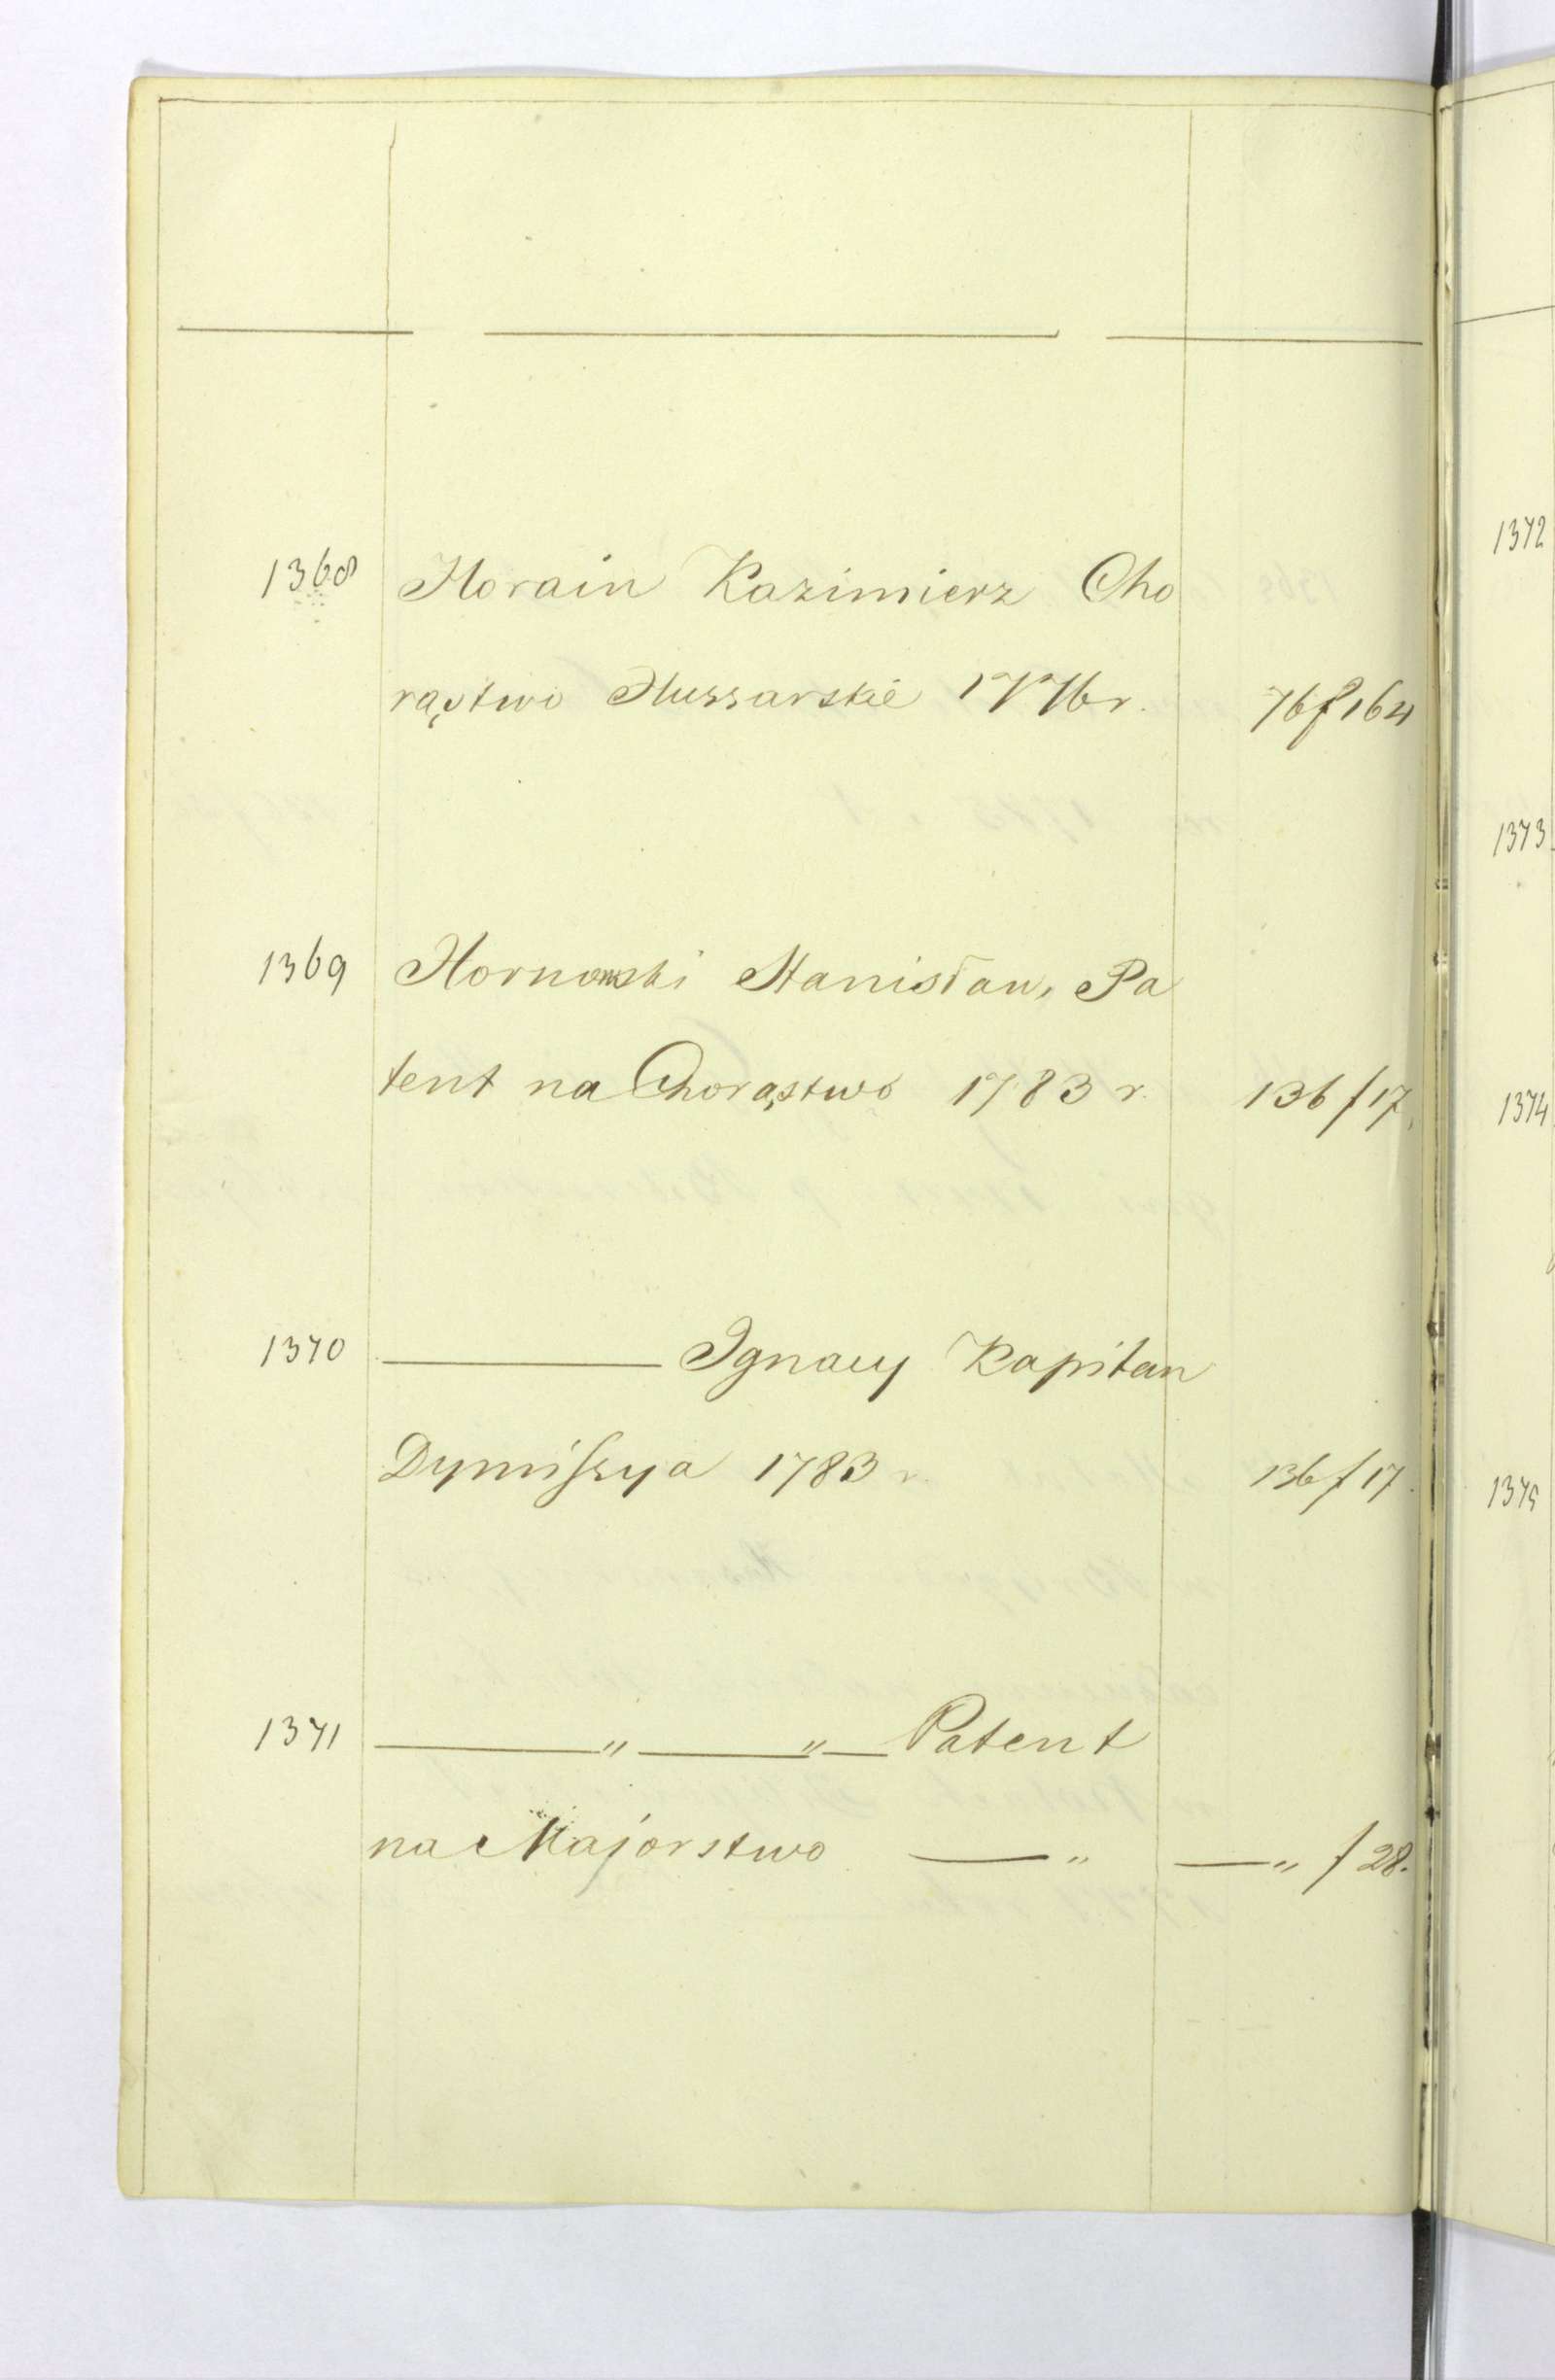 1368 Horain Kazimierz Cho
rąstwo Hussarskie 1776 r. 76 f 164
1369 Hornowski Stanisław, Pa
tent na Chorąstwo 1783 r. 136 f 17.
1370 ——— Ignacy Kapitan
Dymissya 1783 r. 136 f 17.
1371 ——— „ ——— „ — Patent
na Majorstwo —— „ —— „ f 28.
1372
1373
1374
1375